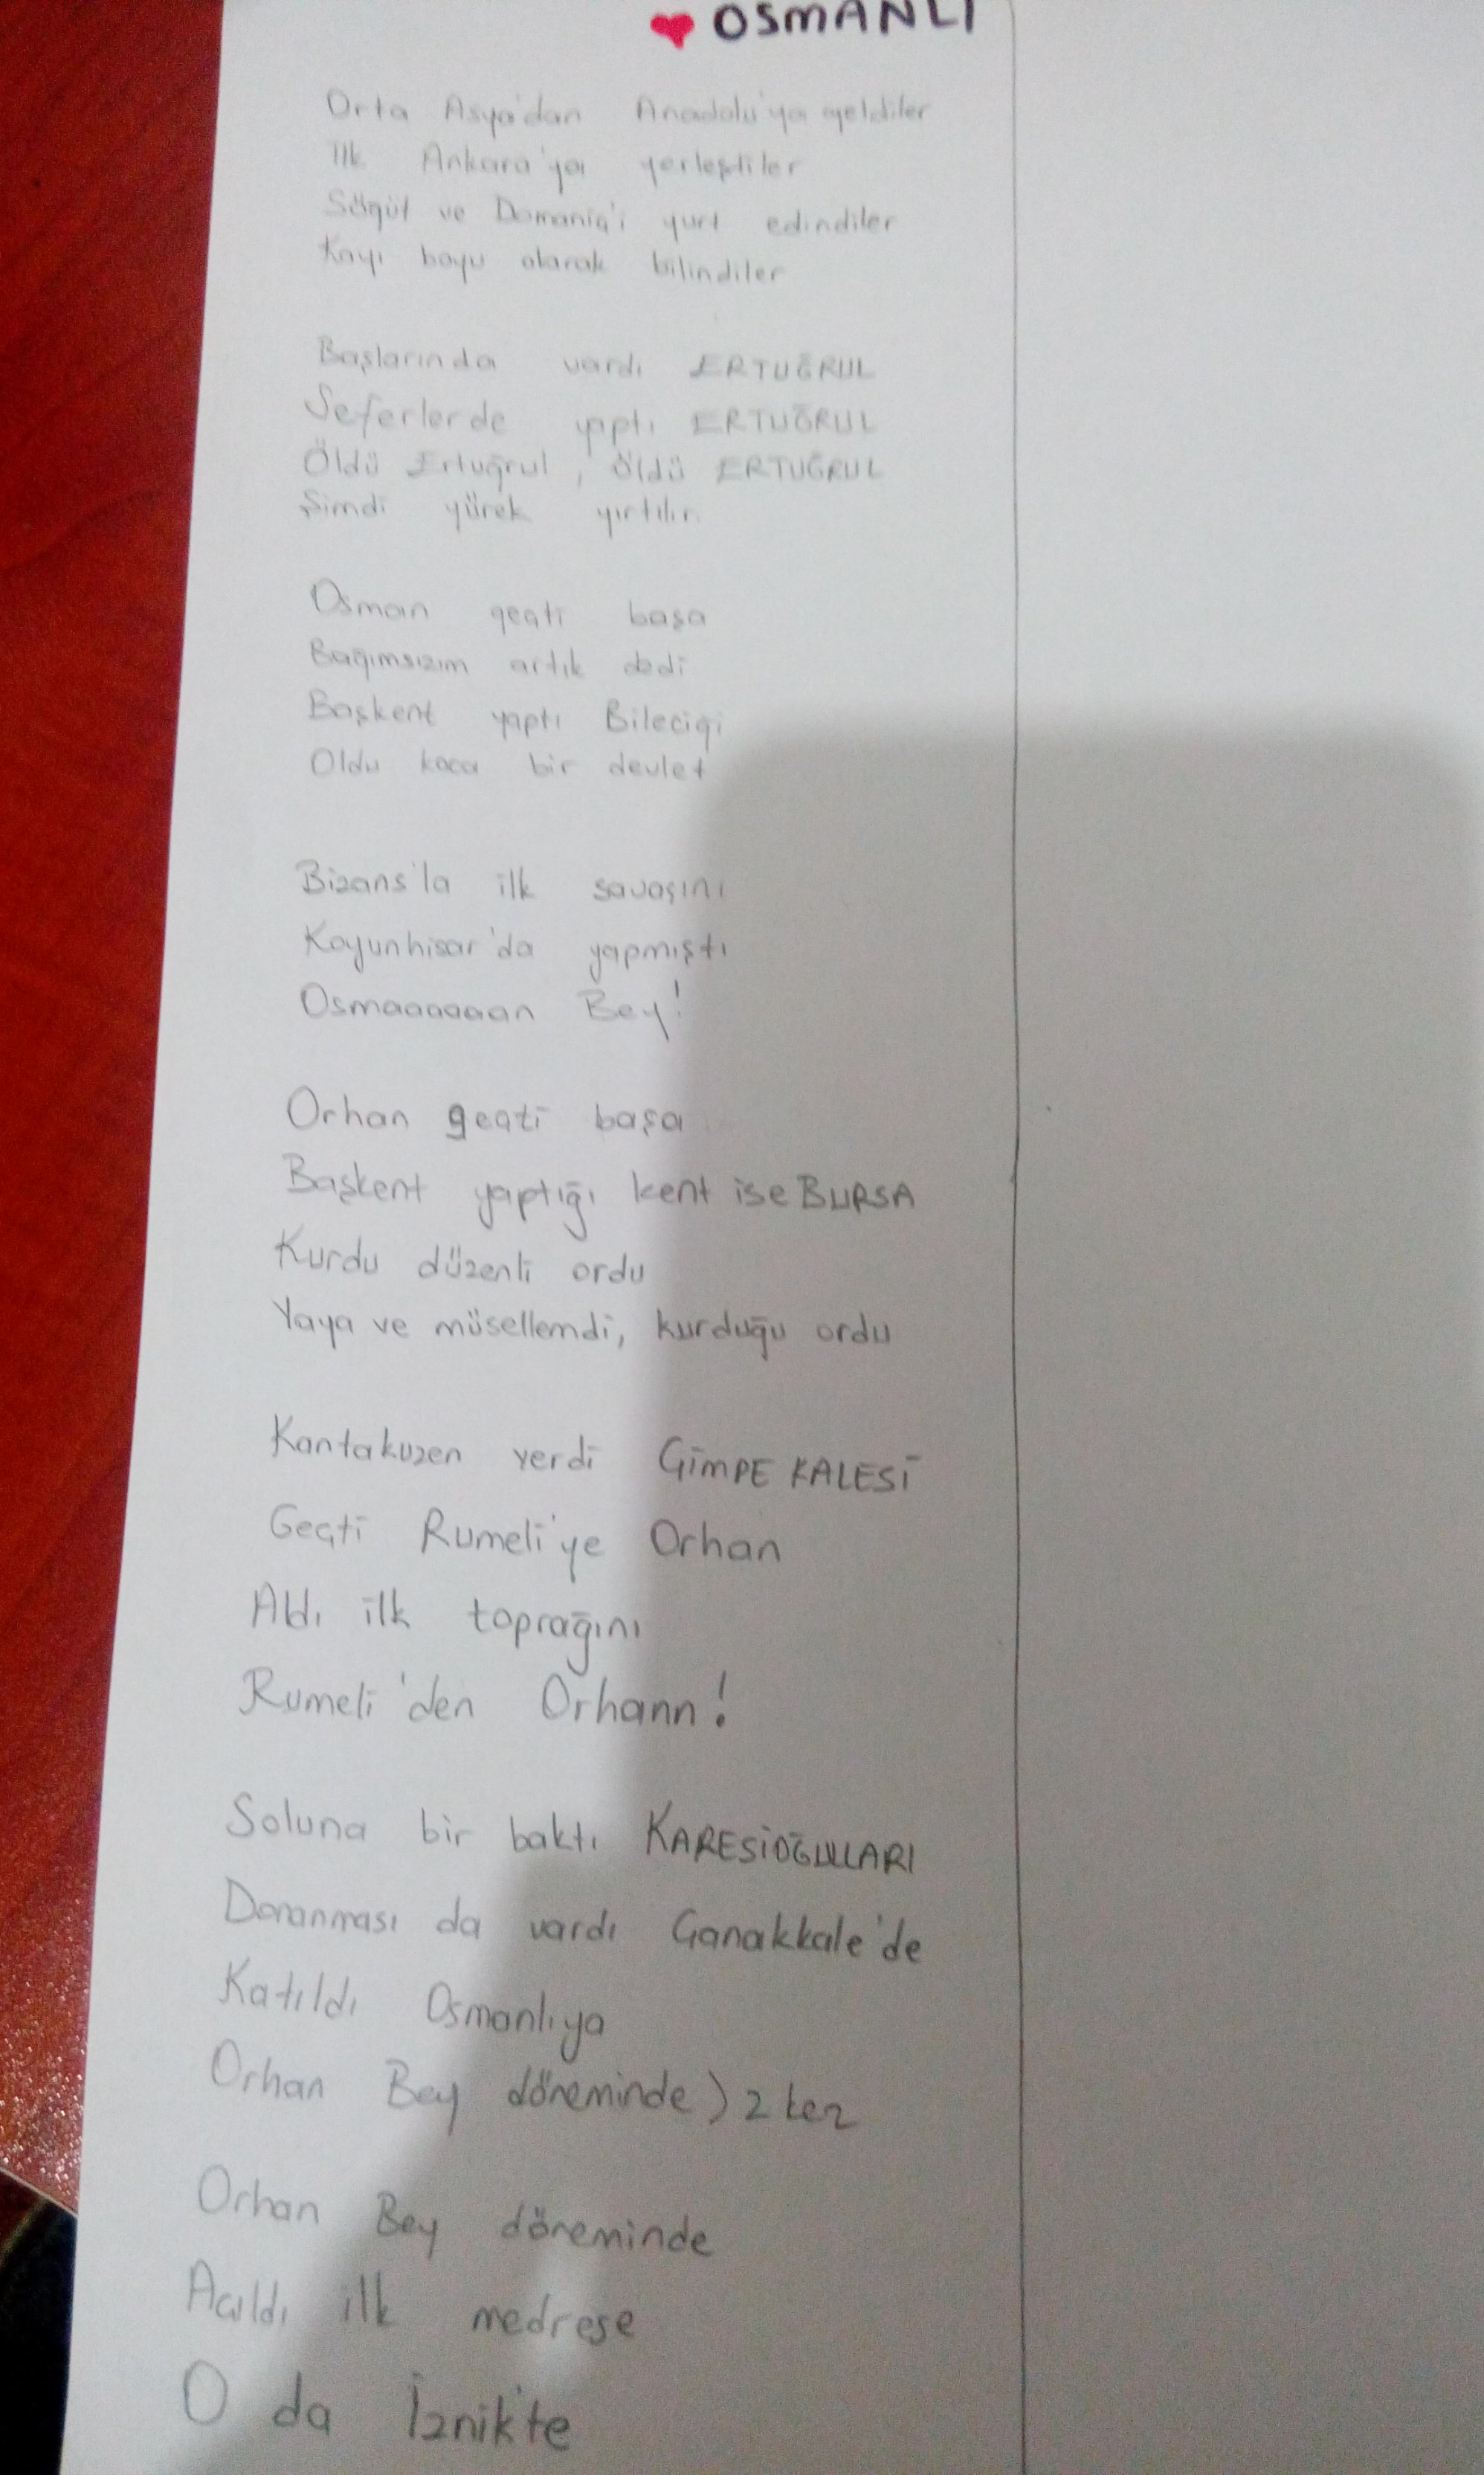 OSMANLI
Orta Asya'dan Anadolu'ya geldiler
İlk Ankara'ya yerleştiler
Söğüt ve Domaniç'i yurt edindiler
Kayı boyu olarak bilindiler
Başlarında vardı ERTUĞRUL
Seferlerde yaptı ERTUĞRUL
Öldü Ertuğrul, öldü ERTUĞRUL
Şimdi yürek yırtılır.
Osman geçti başa
Bağımsızım artık dedi
Başkent yaptı Bileciği
Oldu koca bir devlet
Bizans'la ilk savaşını
Koyunhisar'da yapmıştı
Osmaaaaaan Bey!
Orhan geçti başa
Başkent yaptığı kent ise BURSA
Kurdu düzenli ordu
Yaya ve müsellemdi, kurduğu ordu
Kantakuzen verdi ÇİMPE KALESİ
Geçti Rumeli'ye Orhan
Aldı ilk toprağını
Rumeli'den Orhann!
Soluna bir baktı KARESİOĞULLARI
Donanması da vardı Çanakkale'de
Katıldı Osmanlıya
Orhan Bey döneminde) 2 kez
Orhan Bey döneminde
Açıldı ilk medrese
O da İznik'te